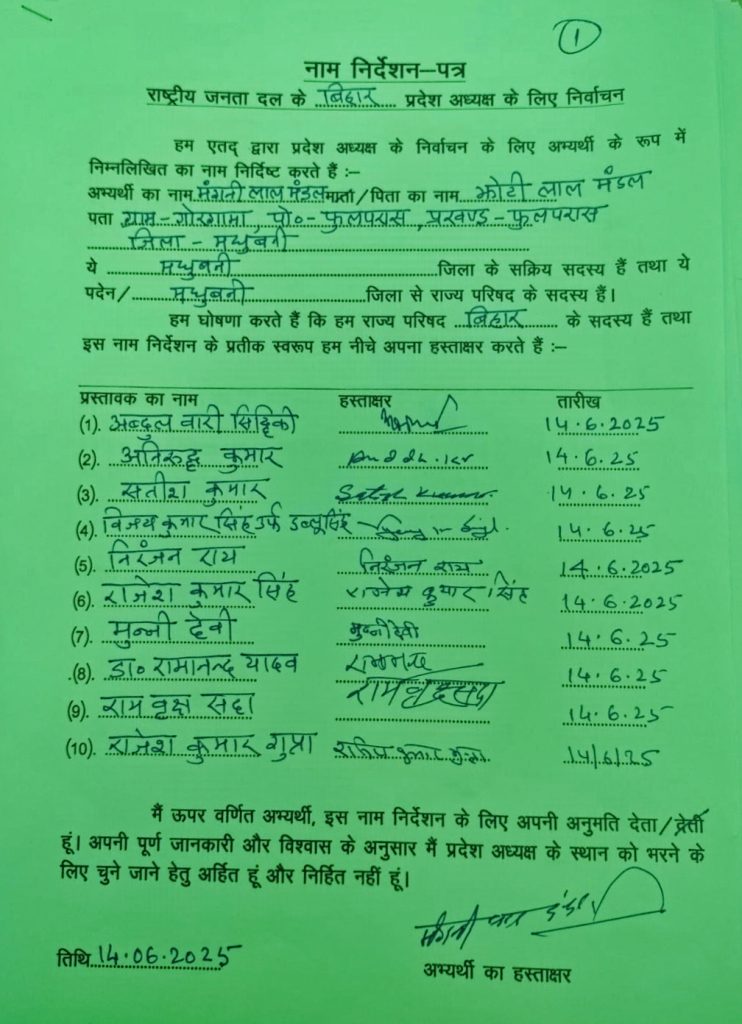 1
नाम निर्देशन–पत्र
राष्ट्रीय जनता दल के बिहार प्रदेश अध्यक्ष के लिए निर्वाचन
हम एतद् द्वारा प्रदेश अध्यक्ष के निर्वाचन के लिए अभ्यर्थी के रूप में
निम्नलिखित का नाम निर्दिष्ट करते हैं :–
अभ्यर्थी का नाम मंगनी लाल मंडल माता/पिता का नाम झोटी लाल मंडल
पता ग्राम - गोरगामा, पो०- फुलपरास, प्रखण्ड - फुलपरास
जिला - मधुबनी
ये मधुबनी जिला के सक्रिय सदस्य हैं तथा ये
पदेन/ मधुबनी जिला से राज्य परिषद के सदस्य हैं।
हम घोषणा करते हैं कि हम राज्य परिषद बिहार के सदस्य हैं तथा
इस नाम निर्देशन के प्रतीक स्वरूप हम नीचे अपना हस्ताक्षर करते हैं :–
प्रस्तावक का नाम हस्ताक्षर तारीख
(1). अब्दुल वारी सिद्दिकी 14.6.2025
(2) अनिरुद्ध कुमार 14.6.25
(3) सतीश कुमार Satish Kumar 14.6.25
(4) विजय कुमार सिंह उर्फ डब्लू सिंह 14.6.25
(5) निरंजन राय निरंजन राय 14.6.2025
(6). राजेश कुमार सिंह राजेश कुमार सिंह 14.6.2025
(7) मुन्नी देवी मुन्नी देवी 14.6.25
(8). डा० रामानन्द यादव 14.6.25
(9). राम वृक्ष सदा रामवृक्ष सदा 14.6.25
(10). राजेश कुमार गुप्ता 14/6/25
मैं ऊपर वर्णित अभ्यर्थी, इस नाम निर्देशन के लिए अपनी अनुमति देता/देती
हूं। अपनी पूर्ण जानकारी और विश्वास के अनुसार मैं प्रदेश अध्यक्ष के स्थान को भरने के
लिए चुने जाने हेतु अर्हित हूं और निर्हित नहीं हूं।
मंगनी लाल मंडल
तिथि 14.06.2025
अभ्यर्थी का हस्ताक्षर